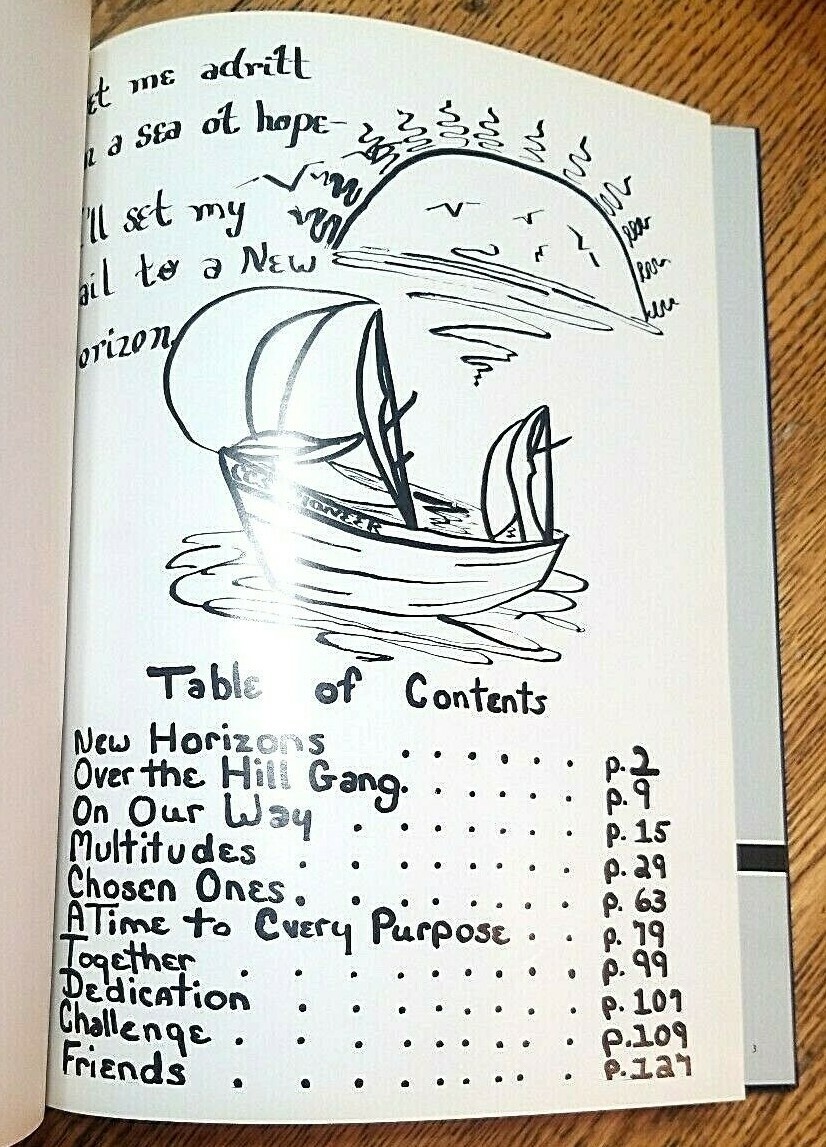 et me adrift
n a sea of hope-
'll set my
ail to a New
orizon
IONEER
Table of Contents
New Horizons . . . . . . p.2
Over the Hill Gang. . . . . p.9
On Our Way . . . . . . p.15
Multitudes . . . . . . . p.29
Chosen Ones. . . . . . . p.63
A Time to Every Purpose . . . p.79
Together . . . . . . . . p.99
Dedication . . . . . . . p.107
Challenge . . . . . . . . p.109
Friends . . . . . . . . p.127
3